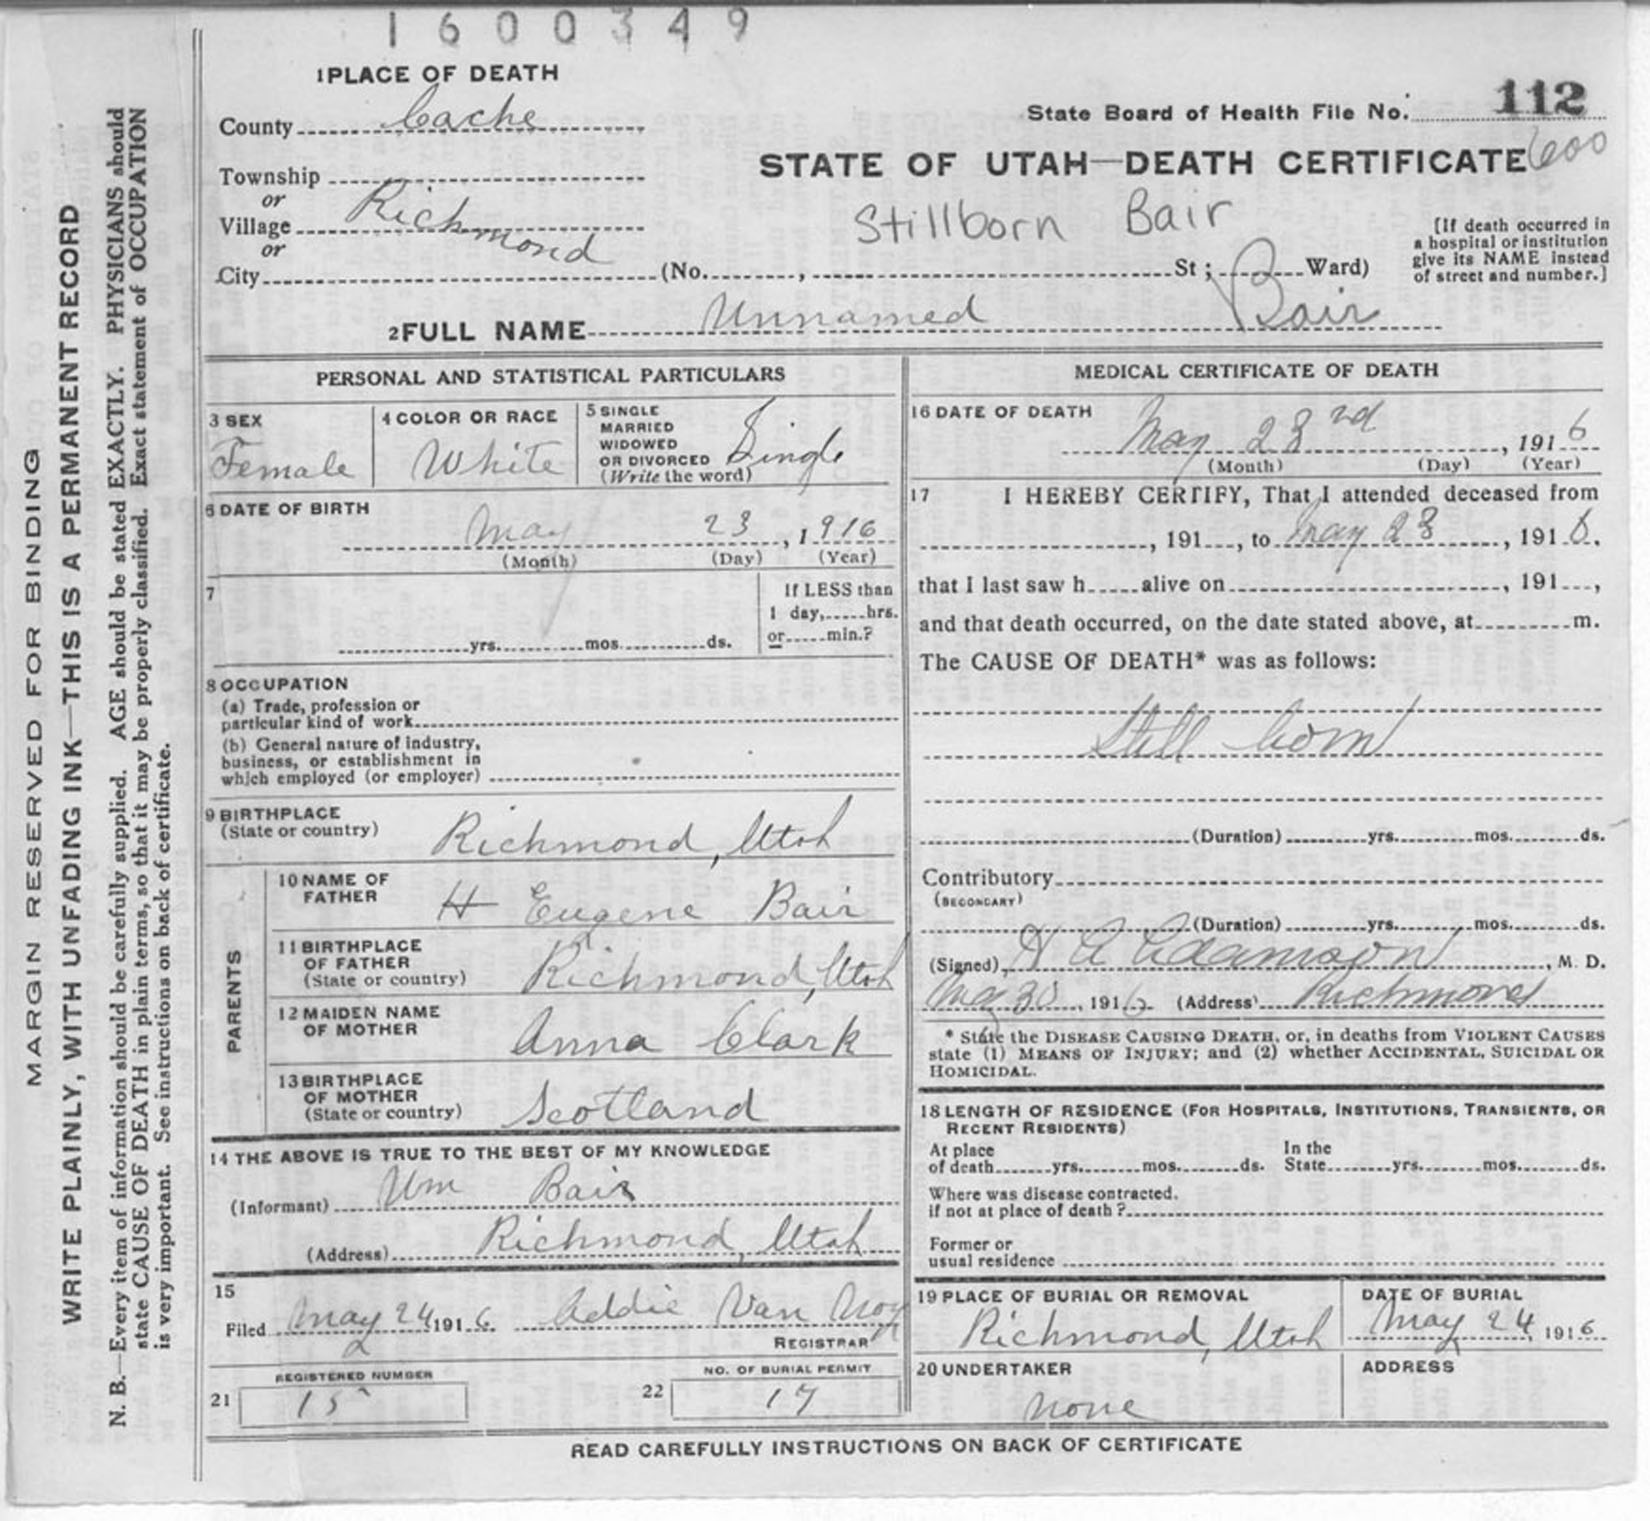 1600349
1 PLACE OF DEATH
County Cache
State Board of Health File No. 112
600
STATE OF UTAH—DEATH CERTIFICATE
Township
or
Village Richmond
or
City (No. , St ; Ward)
Stillborn Bair
[If death occurred in
a hospital or institution
give its NAME instead
of street and number.]
2 FULL NAME Unnamed Bair
PERSONAL AND STATISTICAL PARTICULARS
3 SEX
Female
4 COLOR OR RACE
White
5 SINGLE
MARRIED
WIDOWED
OR DIVORCED
(Write the word)
Single
6 DATE OF BIRTH
May 23, 1916
(Month) (Day) (Year)
7
yrs. mos. ds.
If LESS than
1 day, hrs.
or min.?
8 OCCUPATION
(a) Trade, profession or
particular kind of work
(b) General nature of industry,
business, or establishment in
which employed (or employer)
9 BIRTHPLACE
(State or country)
Richmond, Utah
PARENTS
10 NAME OF
FATHER
H Eugene Bair
11 BIRTHPLACE
OF FATHER
(State or country)
Richmond, Utah
12 MAIDEN NAME
OF MOTHER
Anna Clark
13 BIRTHPLACE
OF MOTHER
(State or country)
Scotland
14 THE ABOVE IS TRUE TO THE BEST OF MY KNOWLEDGE
(Informant) Wm Bair
(Address) Richmond, Utah
15
Filed May 24 1916 Addie Van Noy
REGISTRAR
REGISTERED NUMBER
21 15
NO. OF BURIAL PERMIT
22 17
MEDICAL CERTIFICATE OF DEATH
16 DATE OF DEATH
May 23rd, 1916
(Month) (Day) (Year)
17 I HEREBY CERTIFY, That I attended deceased from
, 191 , to May 23, 1916.
that I last saw h alive on , 191 ,
and that death occurred, on the date stated above, at m.
The CAUSE OF DEATH* was as follows:
Still born
(Duration) yrs. mos. ds.
Contributory
(SECONDARY)
(Duration) yrs. mos. ds.
(Signed) H A Adamson, M. D.
30, 1916 (Address) Richmond
* State the DISEASE CAUSING DEATH, or, in deaths from VIOLENT CAUSES
state (1) MEANS OF INJURY; and (2) whether ACCIDENTAL, SUICIDAL OR
HOMICIDAL.
18 LENGTH OF RESIDENCE (FOR HOSPITALS, INSTITUTIONS, TRANSIENTS, OR
RECENT RESIDENTS)
At place
of death yrs. mos. ds.
In the
State yrs. mos. ds.
Where was disease contracted,
if not at place of death ?
Former or
usual residence
19 PLACE OF BURIAL OR REMOVAL
Richmond, Utah
DATE OF BURIAL
May 24 1916
20 UNDERTAKER
none
ADDRESS
READ CAREFULLY INSTRUCTIONS ON BACK OF CERTIFICATE
MARGIN RESERVED FOR BINDING
WRITE PLAINLY, WITH UNFADING INK—THIS IS A PERMANENT RECORD
N. B.—Every item of information should be carefully supplied. AGE should be stated EXACTLY. PHYSICIANS should
state CAUSE OF DEATH in plain terms, so that it may be properly classified. Exact statement of OCCUPATION
is very important. See instructions on back of certificate.